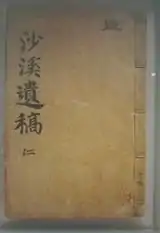 沙溪遺稿
仁